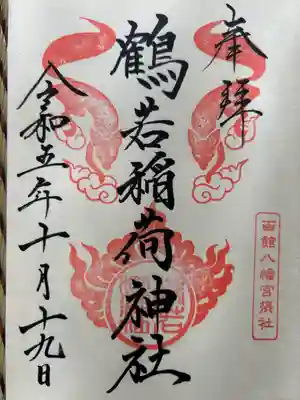 奉拝
鶴若稲荷神社
令和五年十月十九日
函館八幡宮摂社